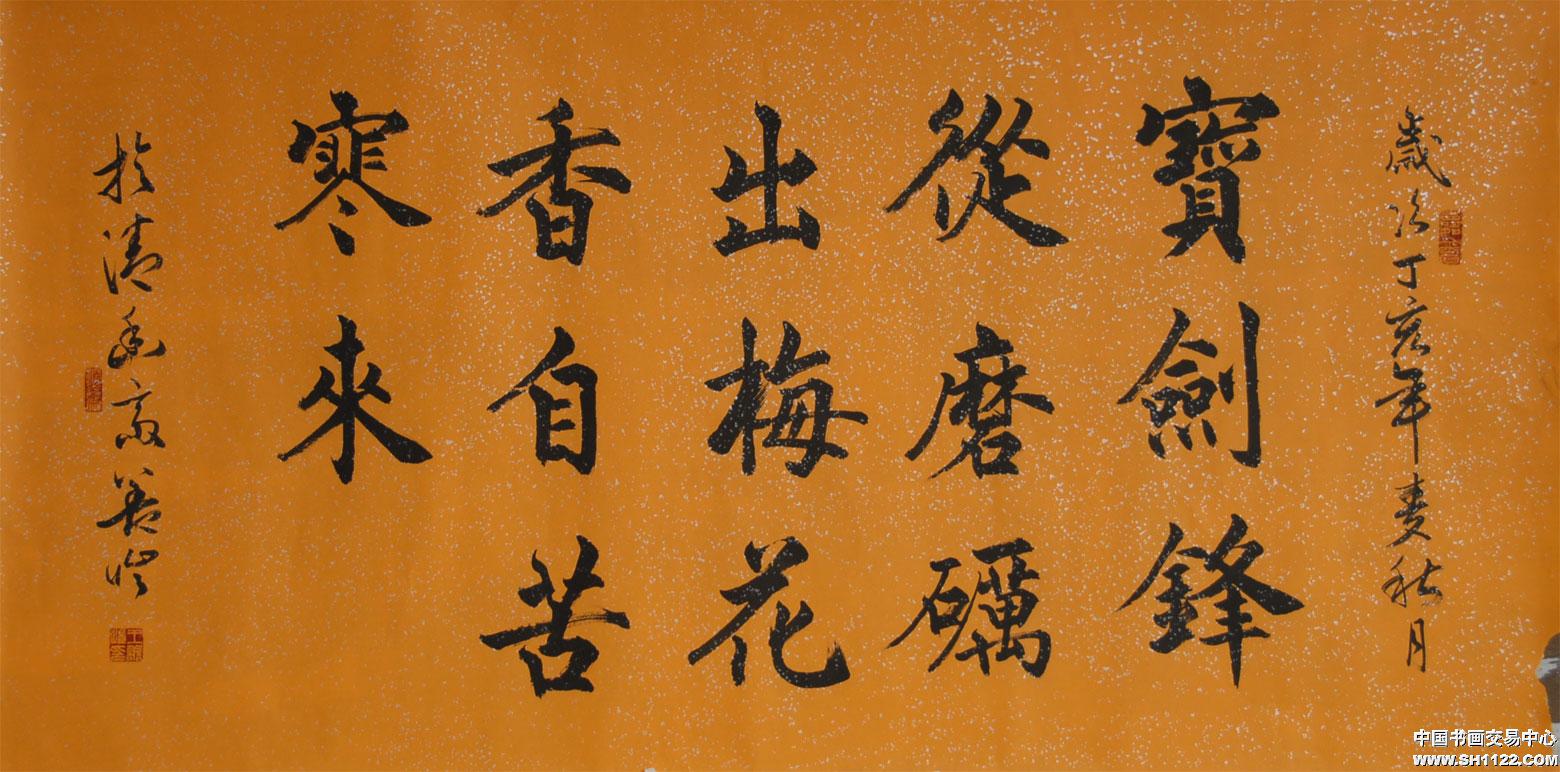 歲次丁亥年夏秋月
寶劍鋒
從磨礪
出梅花
香自苦
寒來
於清香齋
中国书画交易中心
WWW.SH1122.COM